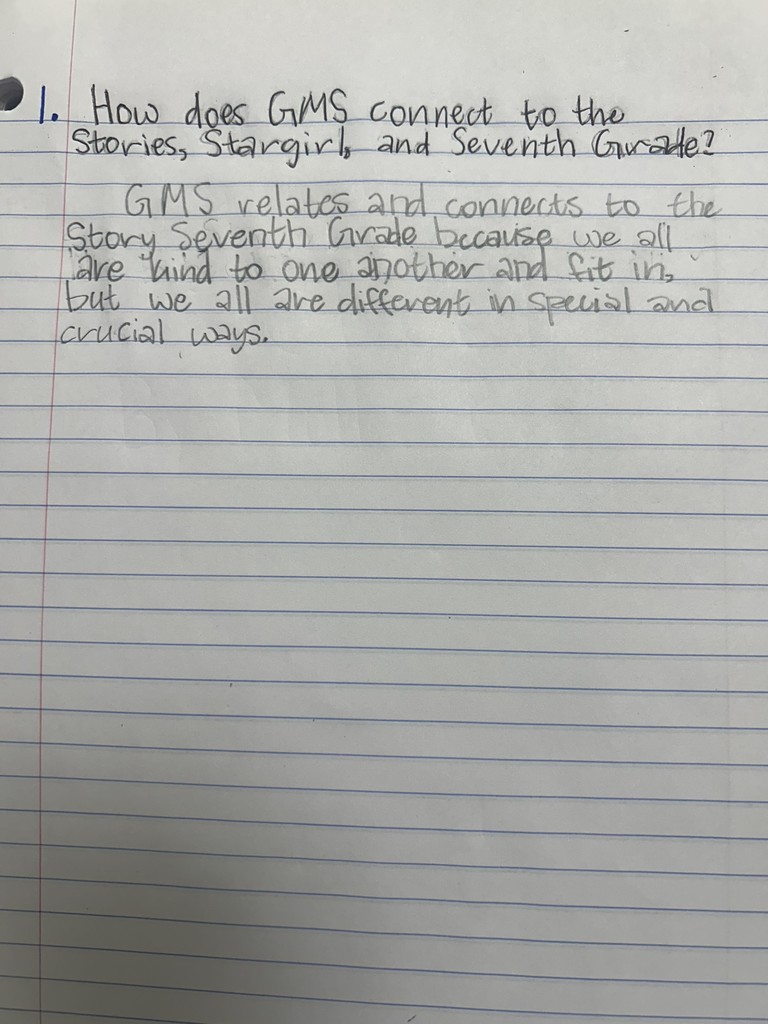 1. How does GMS connect to the
Stories, Stargirl, and Seventh Grade?
GMS relates and connects to the
Story Seventh Grade because we all
are kind to one another and fit in,
but we all are different in special and
crucial ways.